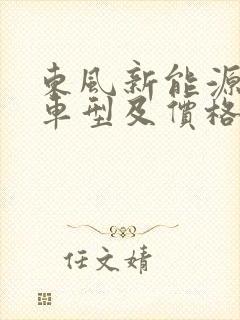 東風新能源
車型及價格
任文婧